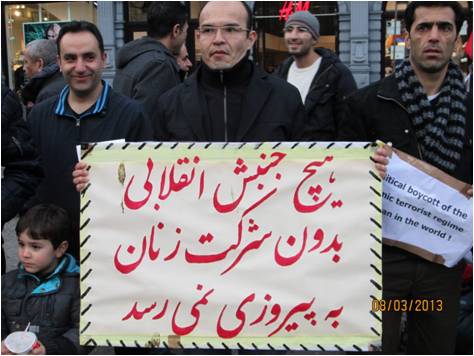 H&M
هیچ جنبش انقلابی
بدون شرکت زنان
به پیروزی نمی رسد
litical boycott of the
mic terrorist regime
an in the world !
08/03/2013